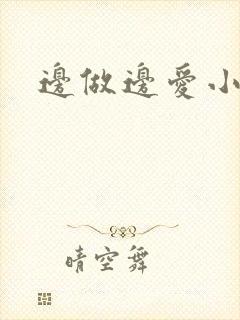 邊做邊愛小
晴空舞